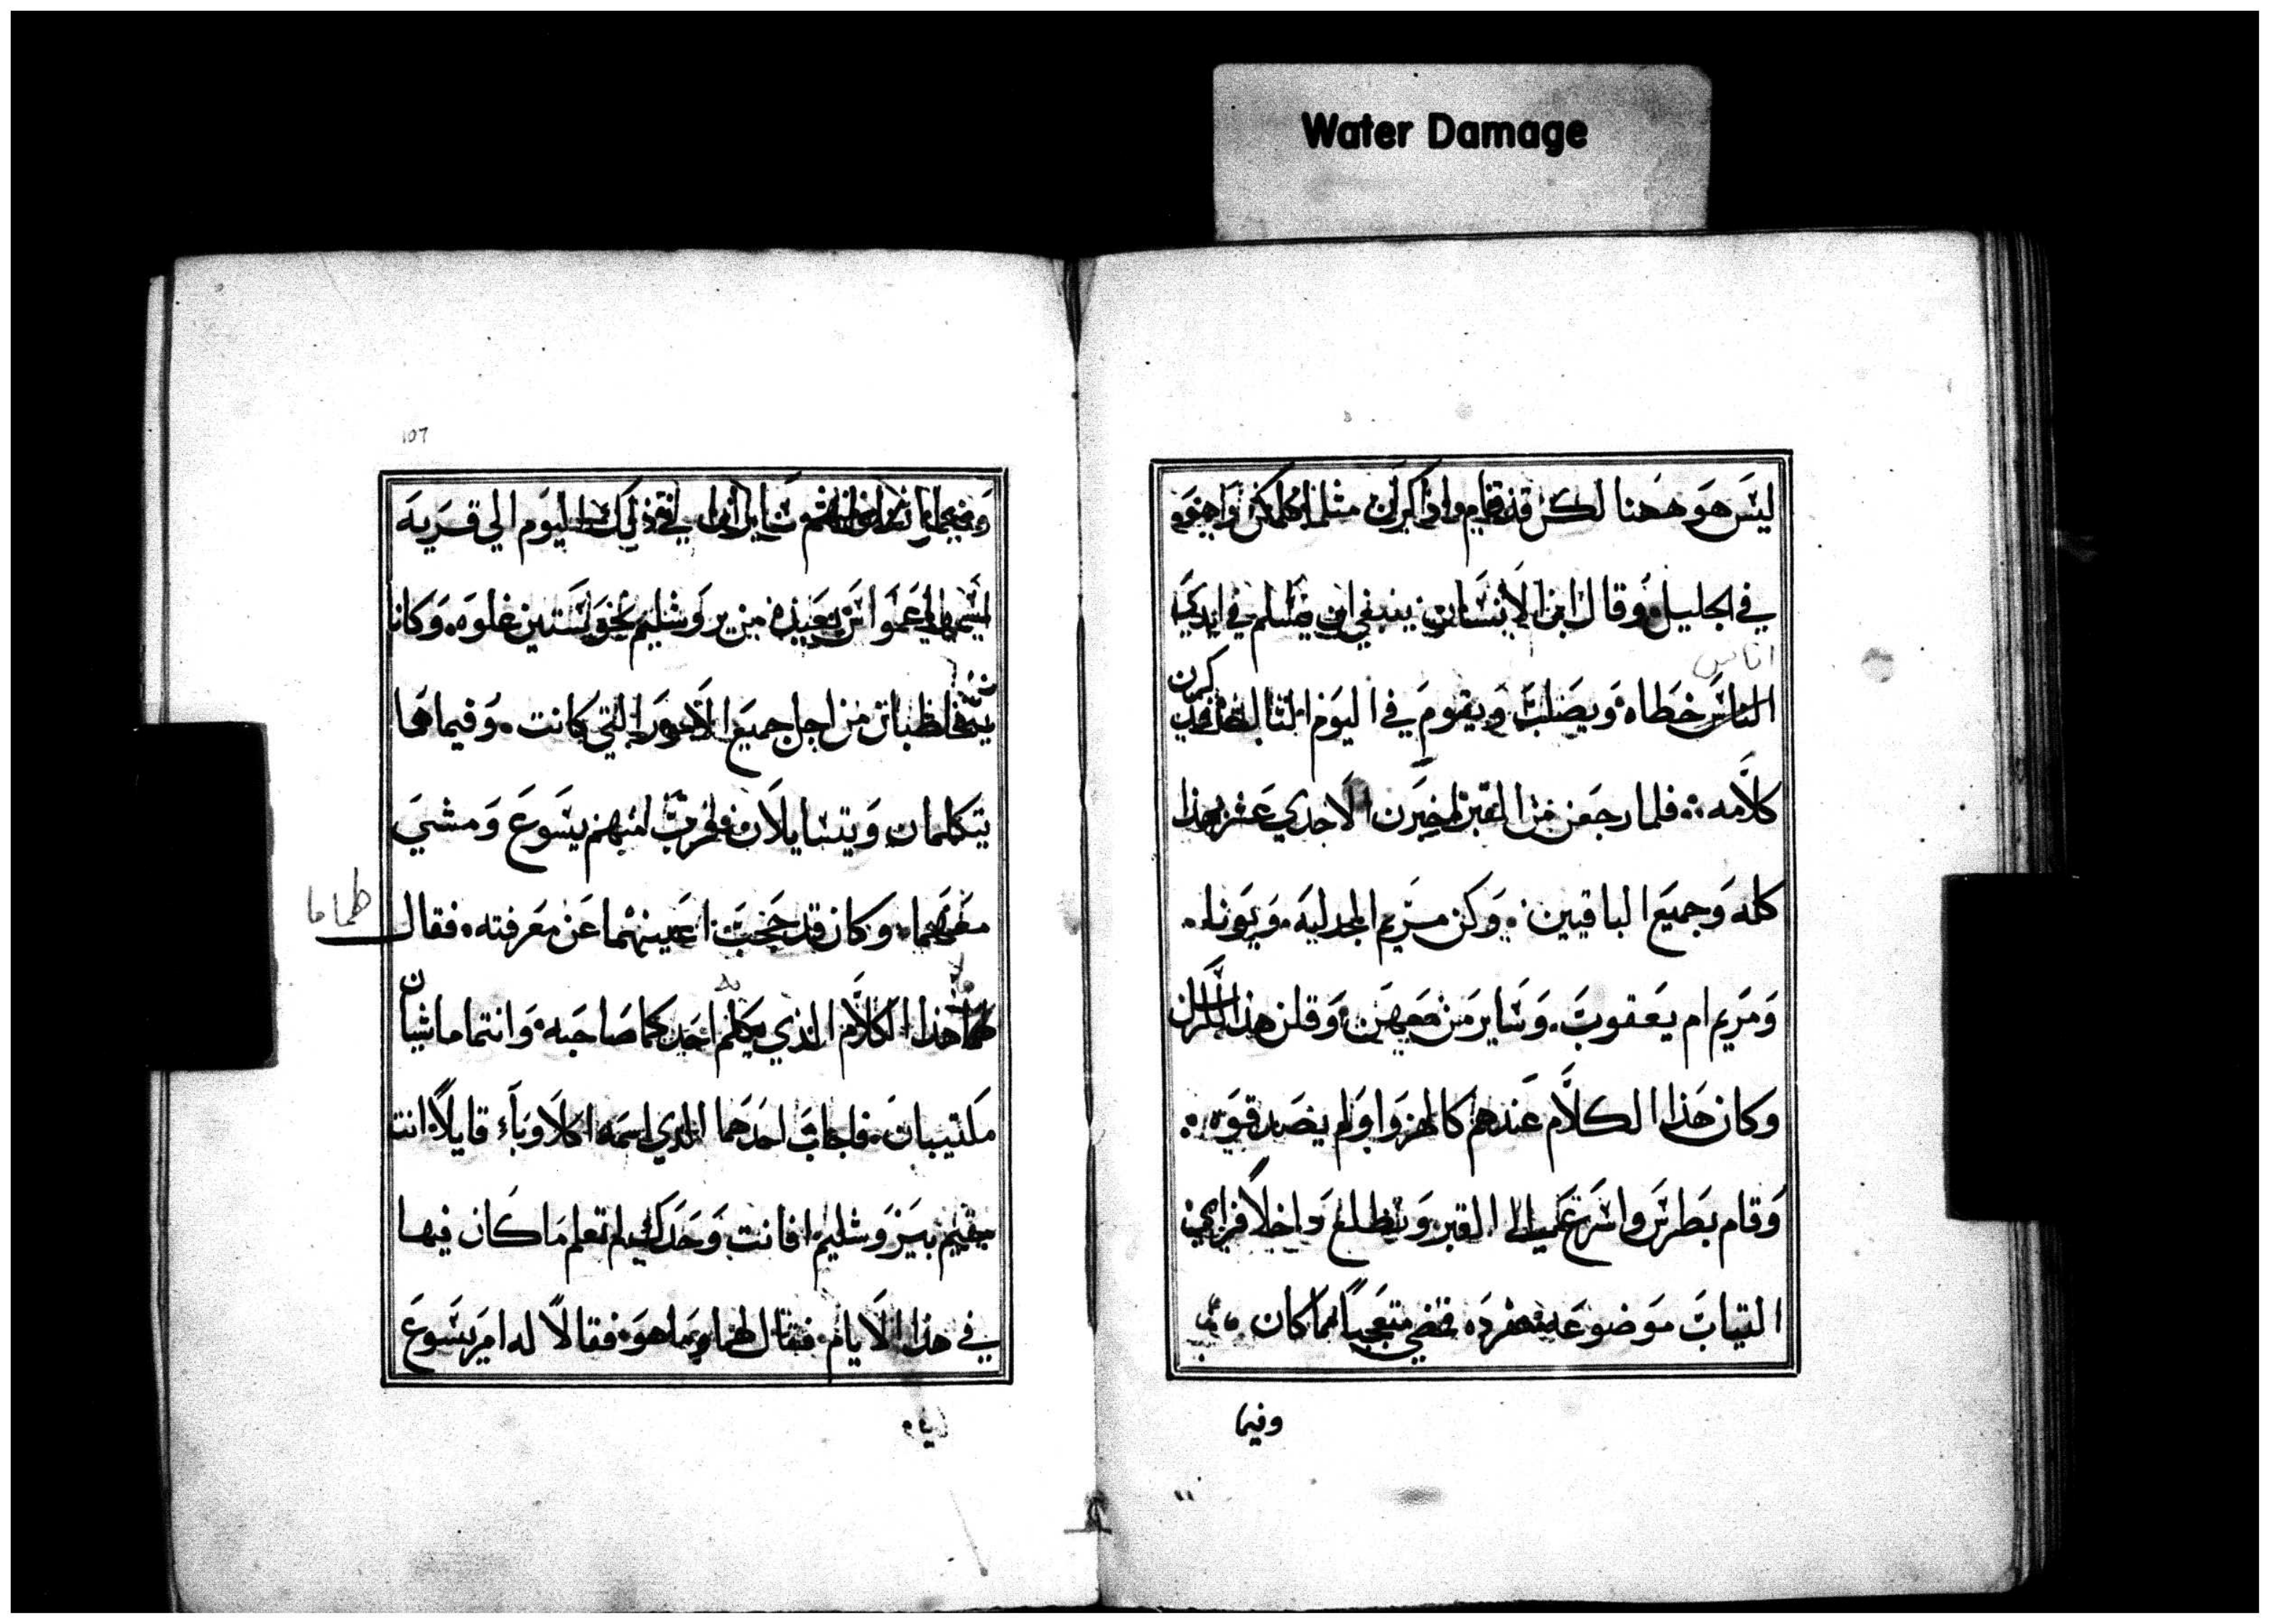 Water Damage
ليس هو ههنا لكن قد قام واذكرن مثلما كلمكن وهو
في الجليل وقال ابن الانسان ينبغي ان يسلم في ايدي
اناس
الناس خطاه ويصلب ويقوم في اليوم الثالث فذكرن
كلامه فلما رجعن من القبر اخبرن الاحدي عشر بهذا
كله وجميع الباقيين وكن مريم المجدليه ويونا
ومريم ام يعقوب وساير من معهن وقلن هذا للرسل
وكان هذا الكلام عندهم كالهزوا ولم يصدقوه
وقام بطرس واسرع الي القبر وتطلع داخلا فراي
الثياب موضوعه مفرده فمضي متعجبا مما كان
وفيما
107
وفيما اليوم الي قريه
عمواس بعيده من يروشليم نحو ستين غلوه وكانا
يتخاطبان من اجل جميع الامور التي كانت وفيما هما
يتكلمان ويتسايلان قرب منهم يسوع ومشي
معهما وكان قد حجبت اعينهما عن معرفته فقال
لهما ما
لهما هذا الكلام الذي يكلم احدكما صاحبه وانتما ماشيان
مكتيبان فاجاب احدهما الذي اسمه اكلاوبا قايلا انت
مقيم بيروشليم افانت وحدك لم تعلم ما كان فيها
في هذا الايام فقال لهما وما هو فقالا له امر يسوع